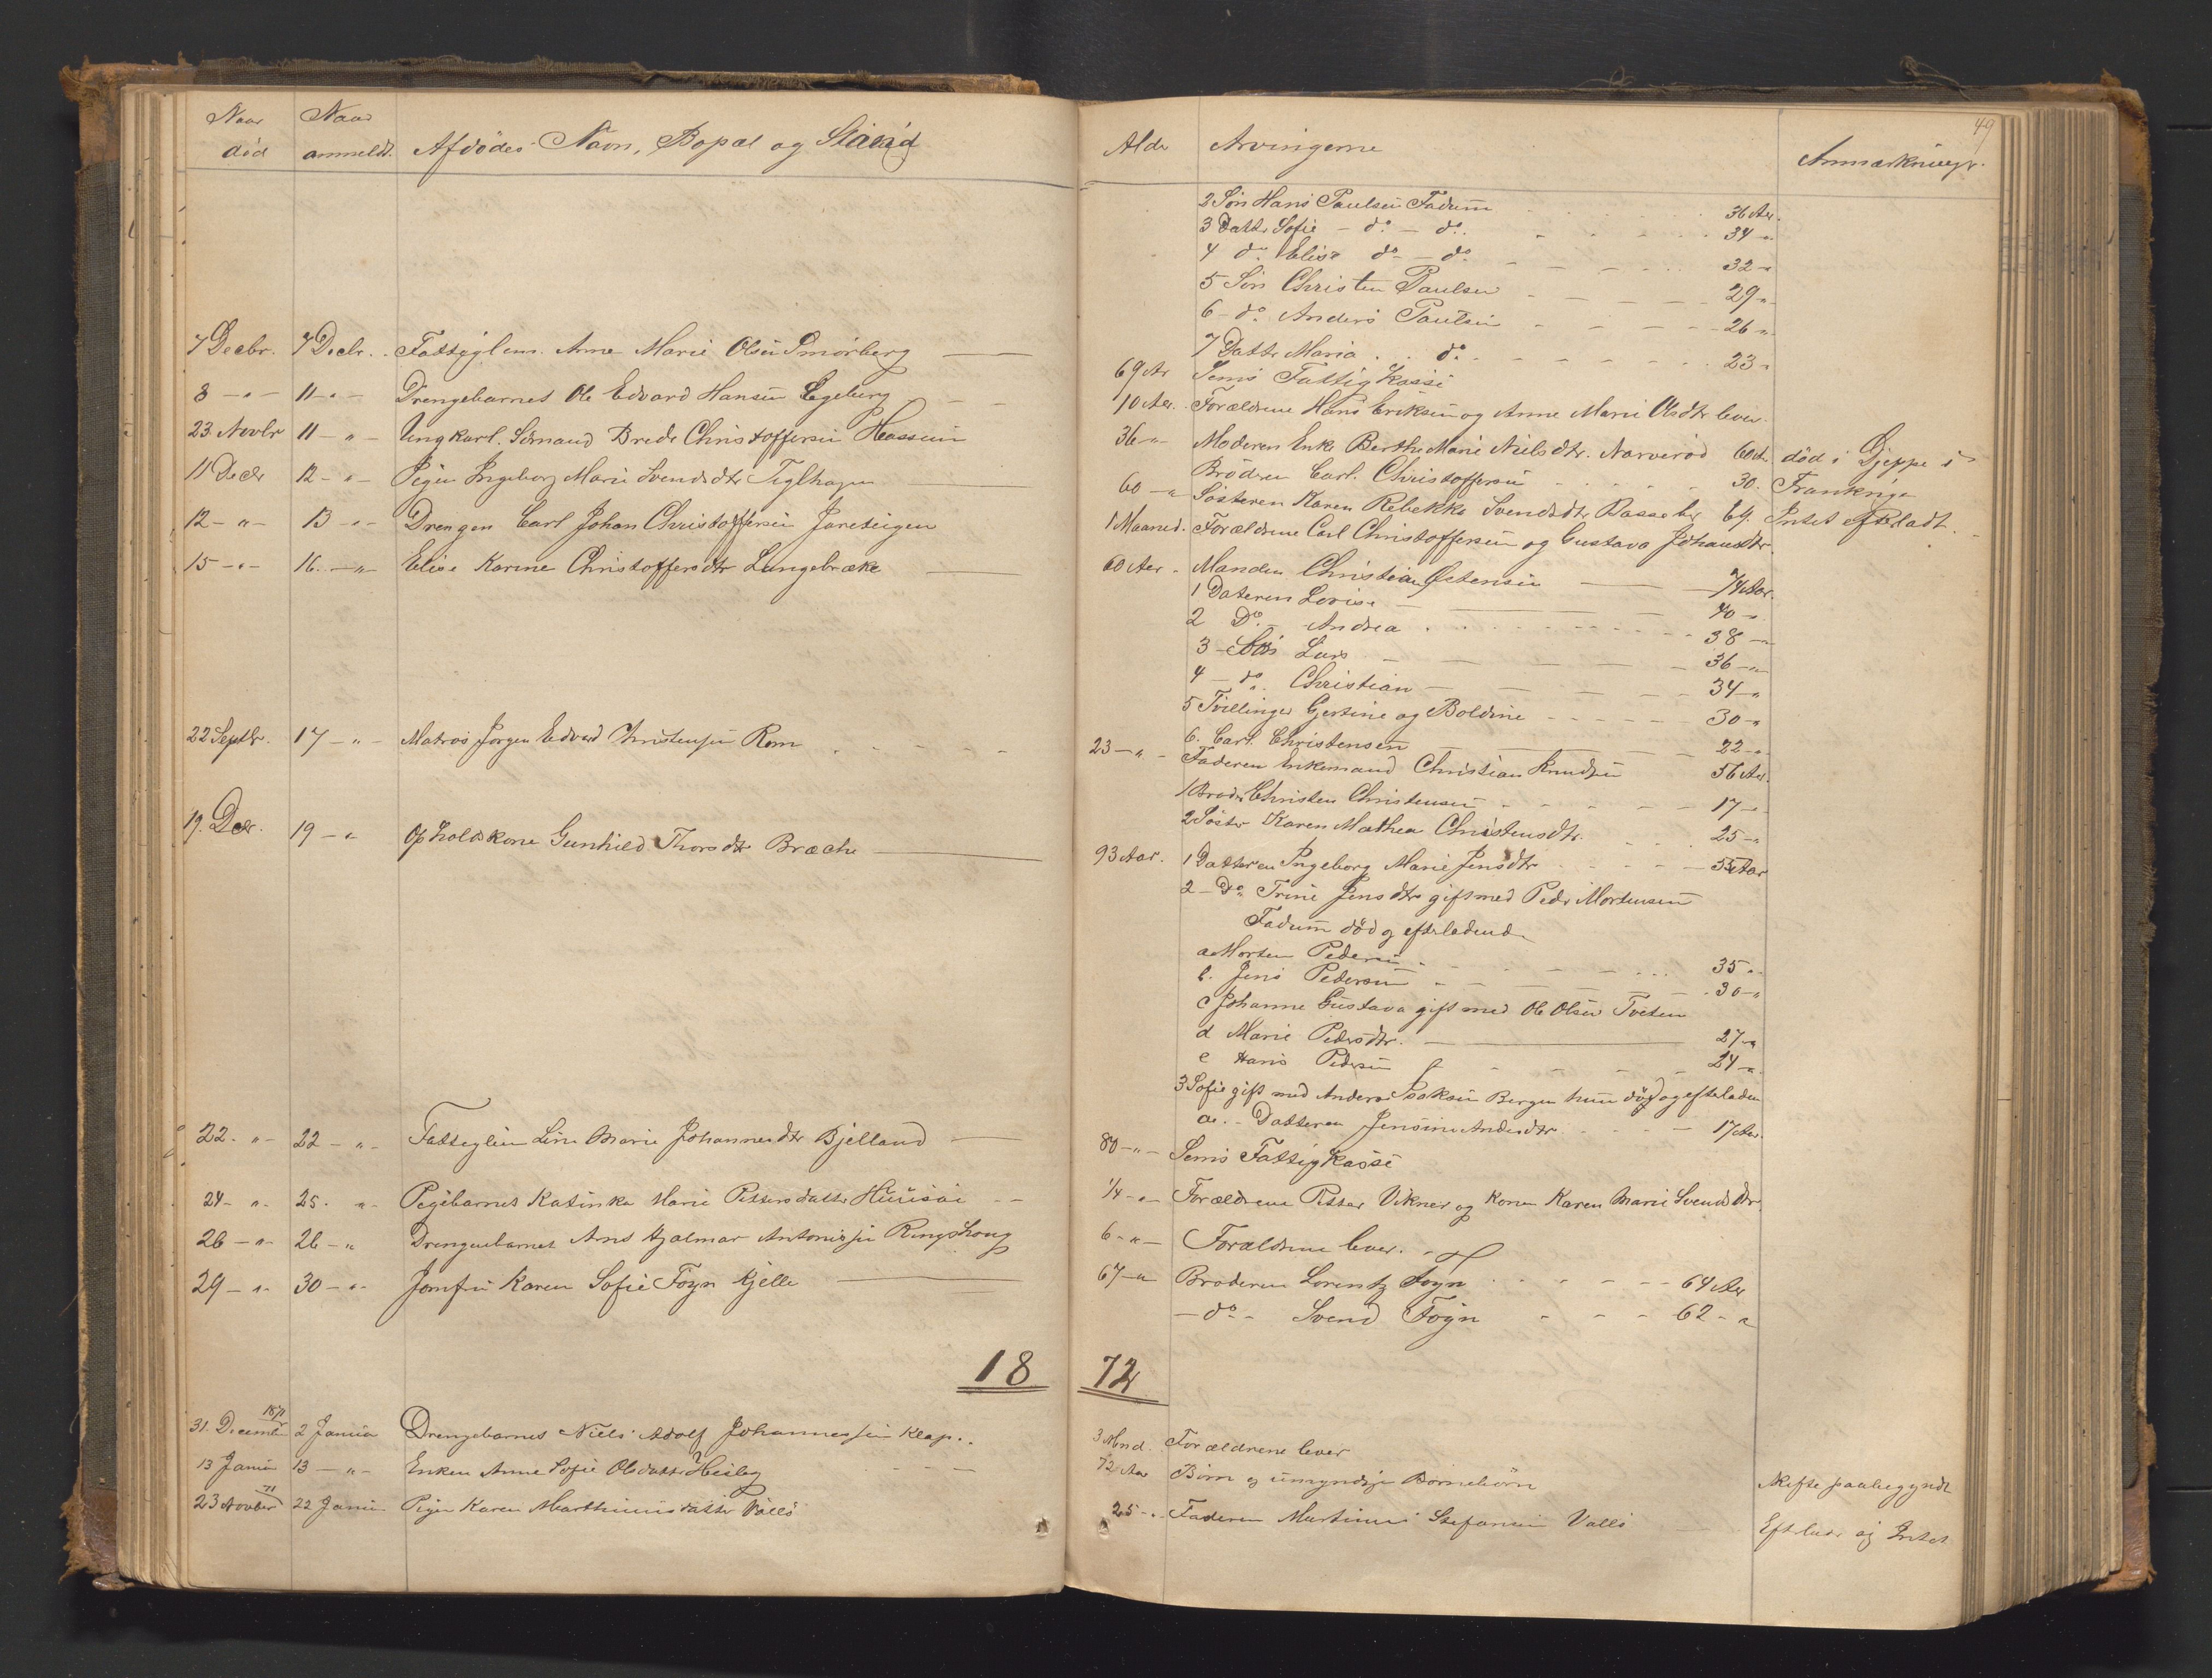 Naar død
Naar anmeldt.
Afdødes Navn, Bopæl og Stand
7 Decbr. 7 Decbr. Fattiglem. Anne Marie Olsen Smörberg
8 - " - 11 - " - Drengebarnet Ole Edvard Hansen Egeberg
23 Novbr 11 - " - Ungkarl. Sömand Brede Christoffersen Hassum
11 Decbr 12 - " - Pigen Ingeborg Marie Svendsdtr Teglhagen
12 - " - 13 - " - Drengen Carl Johan Christoffersen Jareteigen
15 - " - 16. - " - Elise Karine Christoffersdtr Langebrække
22 Septbr. 17 - " - Matros Jørgen Edvard Christensen Rom
19. Decbr. 19 - " Opholdskone Gunhild Thorsdtr Bræche
22. " - 22 - " - Fattiglem Line Marie Johannesdtr Bjelland
24 - " - 25. " - Pigebarnet Katinka Marie Pettersdatter Huusöi
26 - " - 26 - " Drengebarnet Arns Hjalmar Antonissen Ringshoug
29 - " - 30 - " - Jomfru Karen Sofie Föyn Kjelle
18
31. December 1871 2 Januar Drengebarnet Niels Adolf Johannessen Klop.
13 Januar 13 - " - Enken Anne Sofie Olsdatter Heisleg
23 Novber 71 22 Januar Pigen Karen Marthinusdatter Vallö
49
Alder
Arvingerne
Anmærkninger.
2 Sön Hans Paulsen Fadum 36 Aar.
3 Datter Sofie - do. - do. 34 "
4 do. Elise do - do 32 - "
5 Sön Christen Paulsen 29 - "
6 - do. Anders Paulsen 26 "
7 Datter Maria do. 23 "
69 Ar Sems Fattigkasse
10 Aar. Forældrene Hans Eriksen og Anne Marie Olsdtr lever.
36 - " - Moderen Enke Berthe Marie Nielsdtr. Narveröd 60 Ar. død i Djeppe i
Broderen Carl. Christoffersen 30. Frankrige
60 - " Søsteren Karen Rebekka Svendsdtr Basseber 69. Intet efterladt.
1 Maaned. Forældrene Carl Christoffersen og Gustava Johansdtr.
60 Aar - Manden Christian Østensen 74 Aar.
1 Dateren Lovise 40 - "
2 Do. - Andrea 38 - "
3 - Sön Lars 36 - "
4 - do. Christian 34 "
5 Tvillinger Gjertine og Boldine 30 - "
6. Carl Christensen 22 - "
23 - " - Faderen Enkemand Christian Knudsen 56 Aar.
1 Broder Christen Christensen 17 - "
2 Söster Karen Mathea Christensdtr. 25 - "
93 Aar. 1 Datteren Ingeborg Marie Jensdtr 55 Aar
2 - Do. Trine Jensdtr gift med Peder Mortensen
Fadum död og efterladende
a Morten Pedersen 35 "
b. Jens Pedersen 30 - "
c Johanne Gustava gift med Ole Olsen Tveten
d Marie Pedersdtr. 27 - "
e Hans Pedersen 24 - "
3 Sofie gift med Anders Isaksen Bergen hun död og efterladen
a. - Datteren Jensine Andersdtr. 17 Aar.
80 - " - Sems Fattigkasse
1/4 - " - Forældrene Petter Vikner og Konen Karen Marie Svendsdtr
6 - " - Forældrene lever.
67 - " Broderen Lorentz Foyn 64 Aar
- do - Svend Föyn 62 - "
72
3 Mnd. Forældrene lever
72 Aar Börn og umyndige Börnebörn Skifte paabegyndt
25 - " - Faderen Martinus Stefansen Vallö Efterlader ej Intet